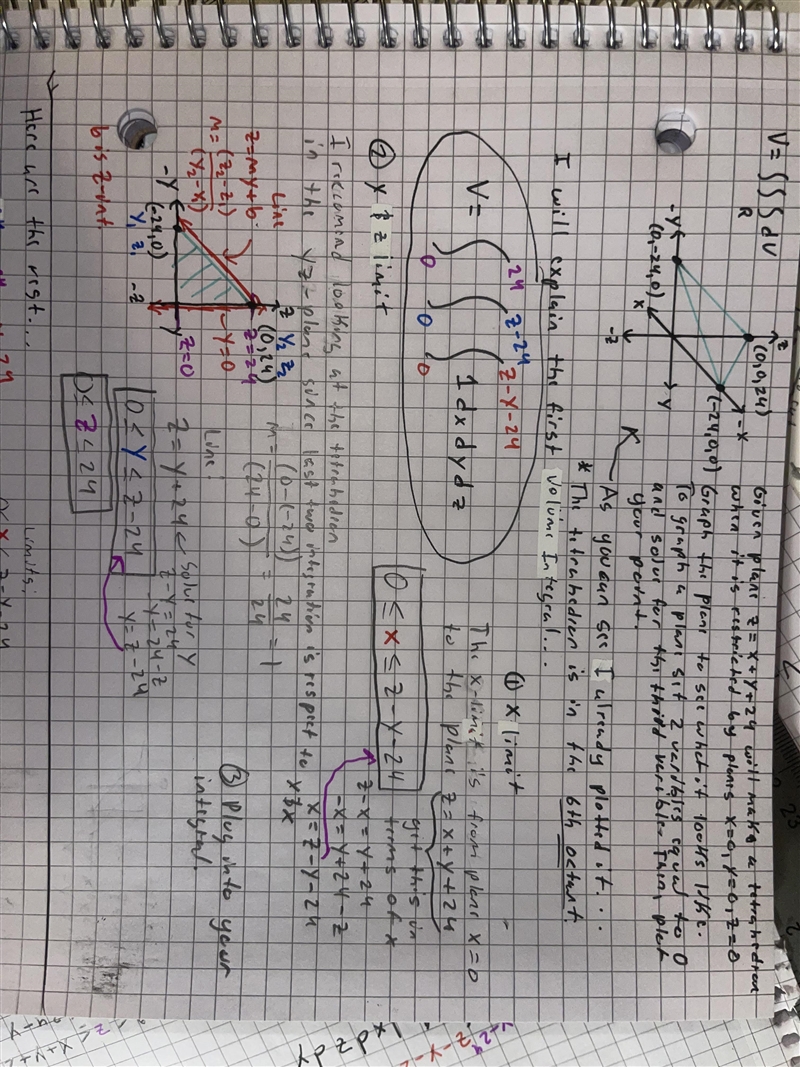 V = ∫∫∫ dV
R
Given plane z = x+y+24 will make a tetrahedron
when it is restricted by planes x=0, y=0, z=0
Graph the plane to see what it looks like.
To graph a plane set 2 varibles equal to 0
and solve for the third varible. Then, plot
your point.
As you can see I already plotted it...
* The tetrahedron is in the 6th octant.
z
(0,0,24)
-x
(-24,0,0)
-y
(0,-24,0)
x
y
-z
I will explain the first volume Integral...
V = ∫₀²⁴ ∫₀^(z-24) ∫₀^(z-y-24) 1 dx dy dz
① x limit
The x-limit is from plane x=0
to the plane z=x+y+24
get this in
terms of x
0 ≤ x ≤ z-y-24
z-x=y+24
-x=y+24-z
x=z-y-24
② y & z limit
I reccomend looking at the tetrahedron
in the yz-plane since last two integration is respect to
y & x
Line
z=my+b
m=(z₂-z₁)
(y₂-y₁)
b is z-int
z
y₂ z₂
(0,24)
z=24
y=0
z=0
-y
(-24,0)
y₁ z₁
-z
m= (0-(-24)) = 24 = 1
(24-0) 24
Line:
z=y+24 < solve for y
z-y=24
-y=24-z
y=z-24
0 ≤ y ≤ z-24
0 ≤ z ≤ 24
③ Plug into your
integral.
Here are the rest...
Limits: